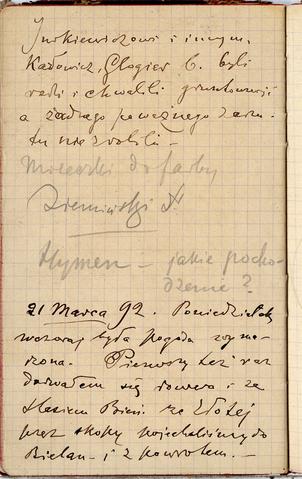 Jurkiewiczowi i innym.
Kadowicz, Gloger C. byli
radzi i chwalili gruntowność
a żadnego poważnego zarzu-
tu nie zrobili –
do farby
Ziemiński N.
Hymen – jakie pocho-
dzenie?
21 Marca 92. Poniedziałek
wczoraj była pogoda wyma-
rzona. Pierwszy też raz
dorwałem się roweru i ze
Stasiem Bieni. ze Złotej
przez szkopy pojechaliśmy do
Bielan – i z powrotem. –